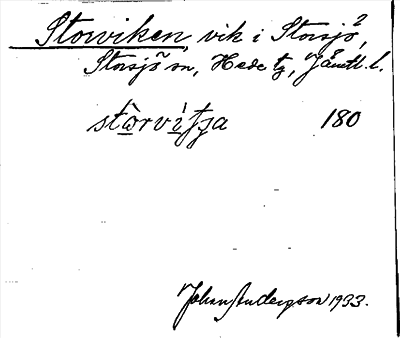 Storviken, vik i Storsjö,
Storsjö sn, Hede tg, Jämtl. l.
180
Johan Andersson 1933.